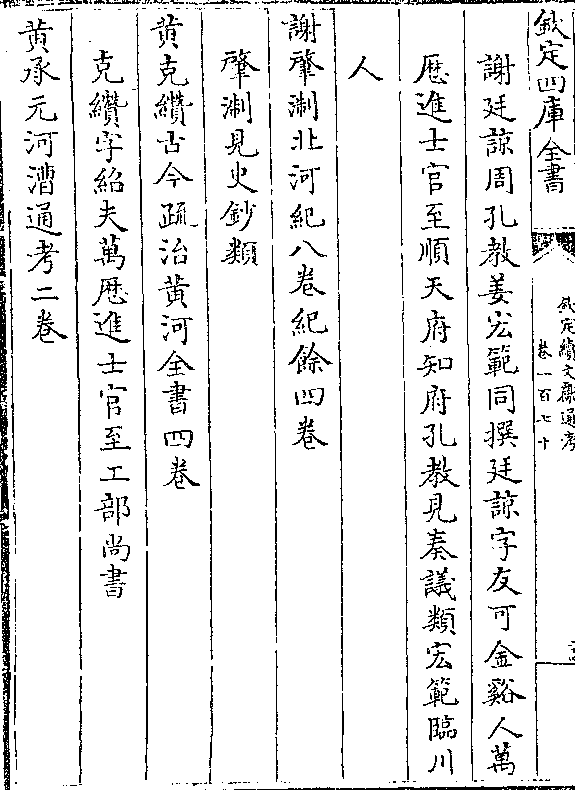 欽定四庫全書
欽定續文獻通考
卷一百七十
謝廷諒周孔教姜宏範同撰廷諒字友可金谿人萬
厯進士官至順天府知府孔教見奏議類宏範臨川
人
謝肇淛北河紀八卷紀餘四卷
肇淛見史鈔類
黄克纘古今疏治黄河全書四卷
克纘字紹夫萬厯進士官至工部尚書
黄承元河漕通考二卷